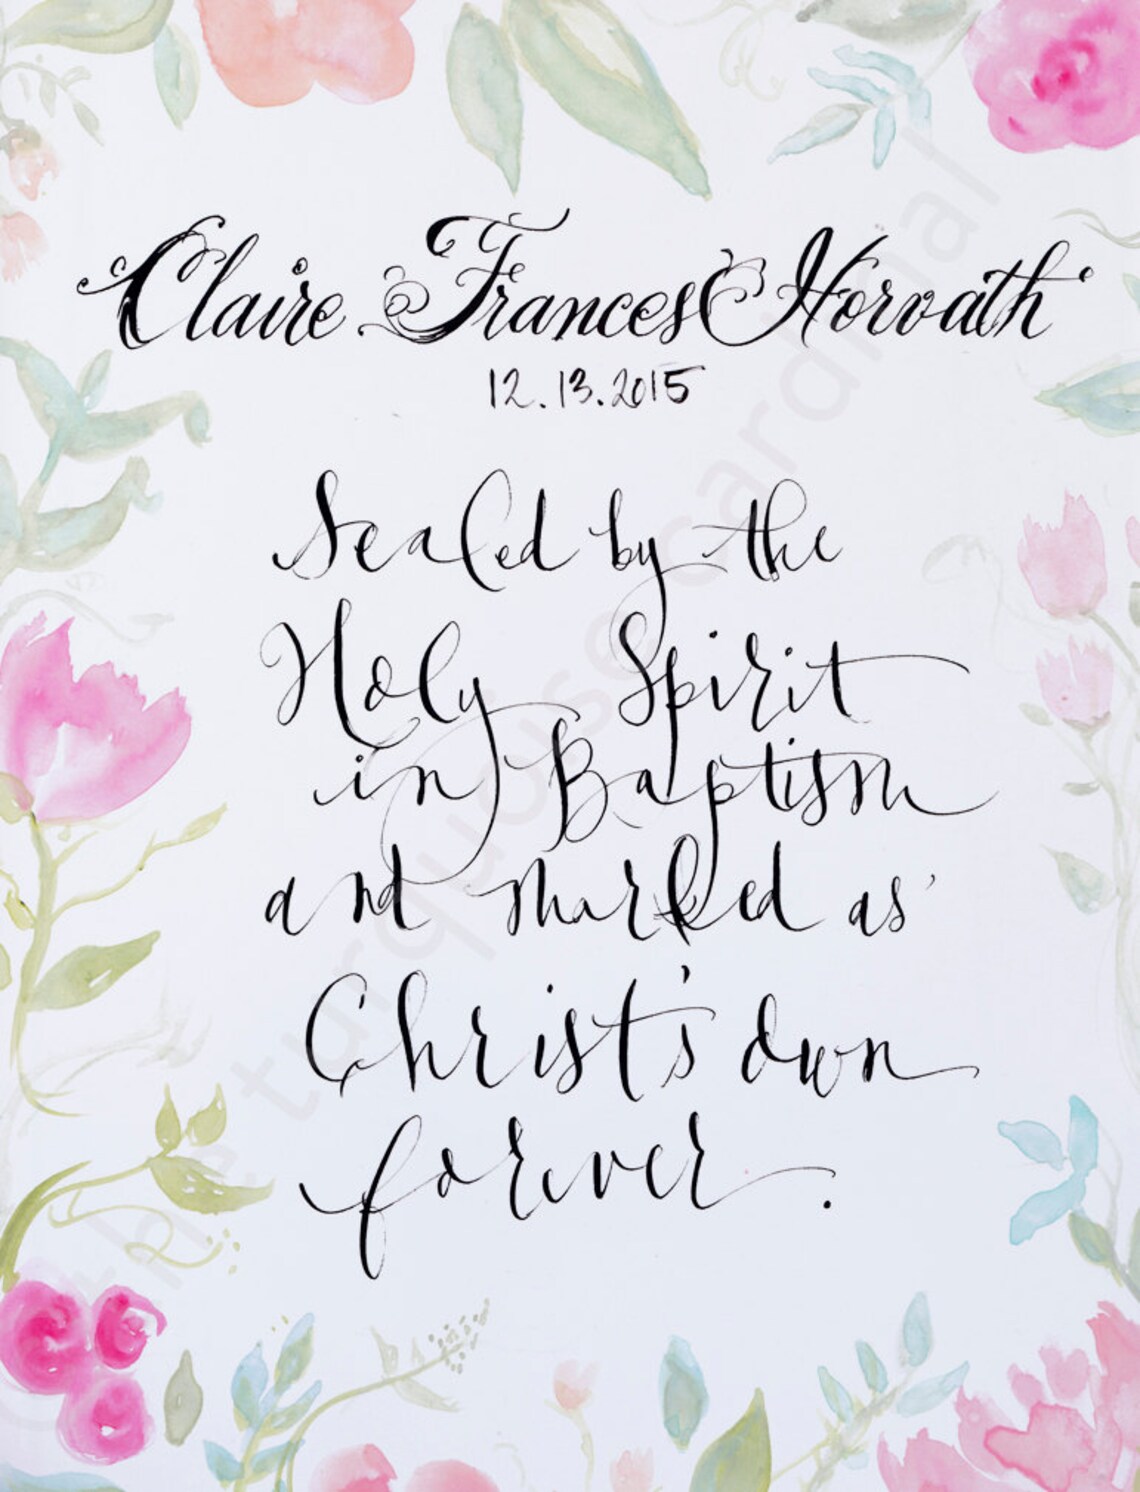 Claire Frances Horvath
12.13.2015
Sealed by the
Holy Spirit
in Baptism
and Marked as
Christ's own
forever.
the turquoise cardinal